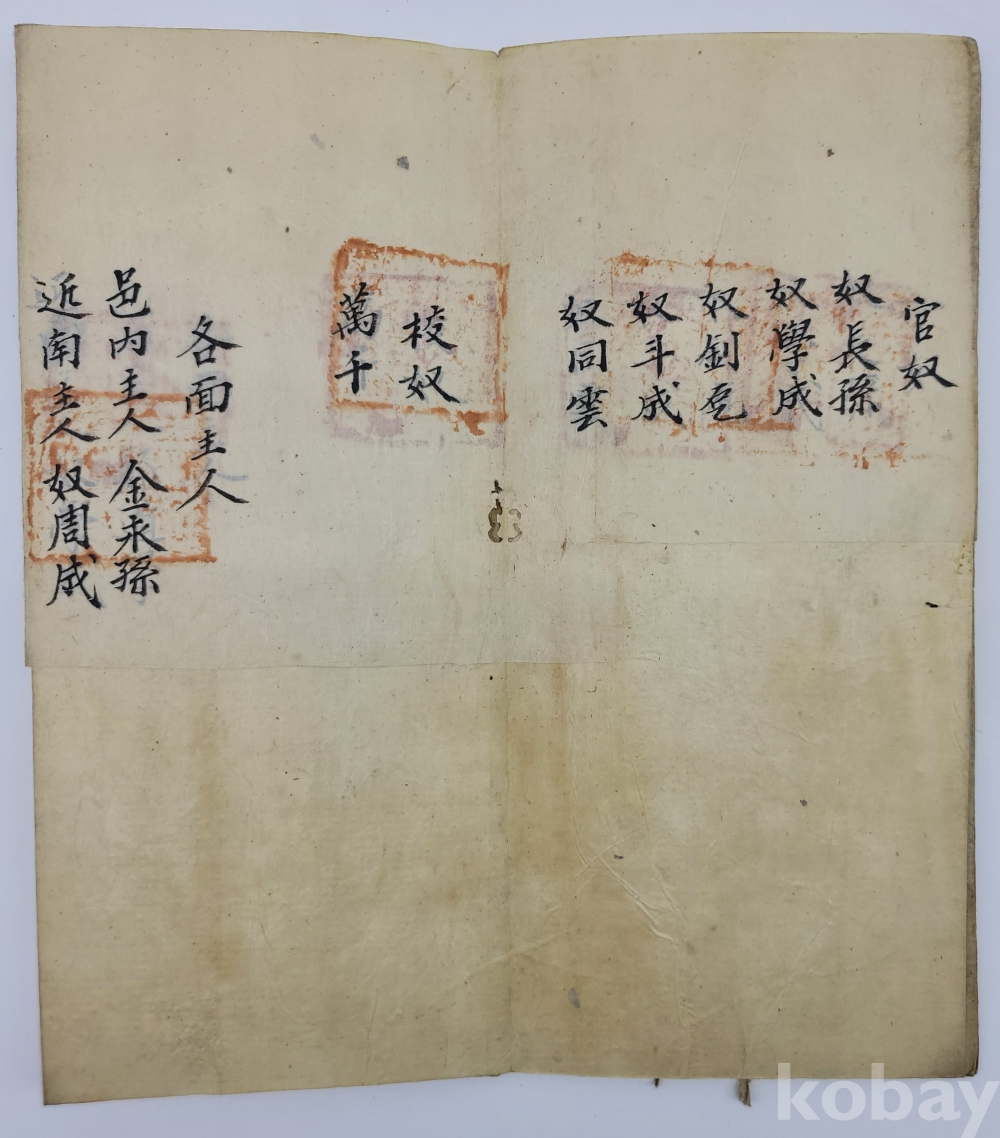 官奴
奴長孫
奴學成
奴釗乭
奴斗成
奴同雲
校奴
萬千
各面主人
邑內主人 金永孫
近南主人 奴周成
kobay